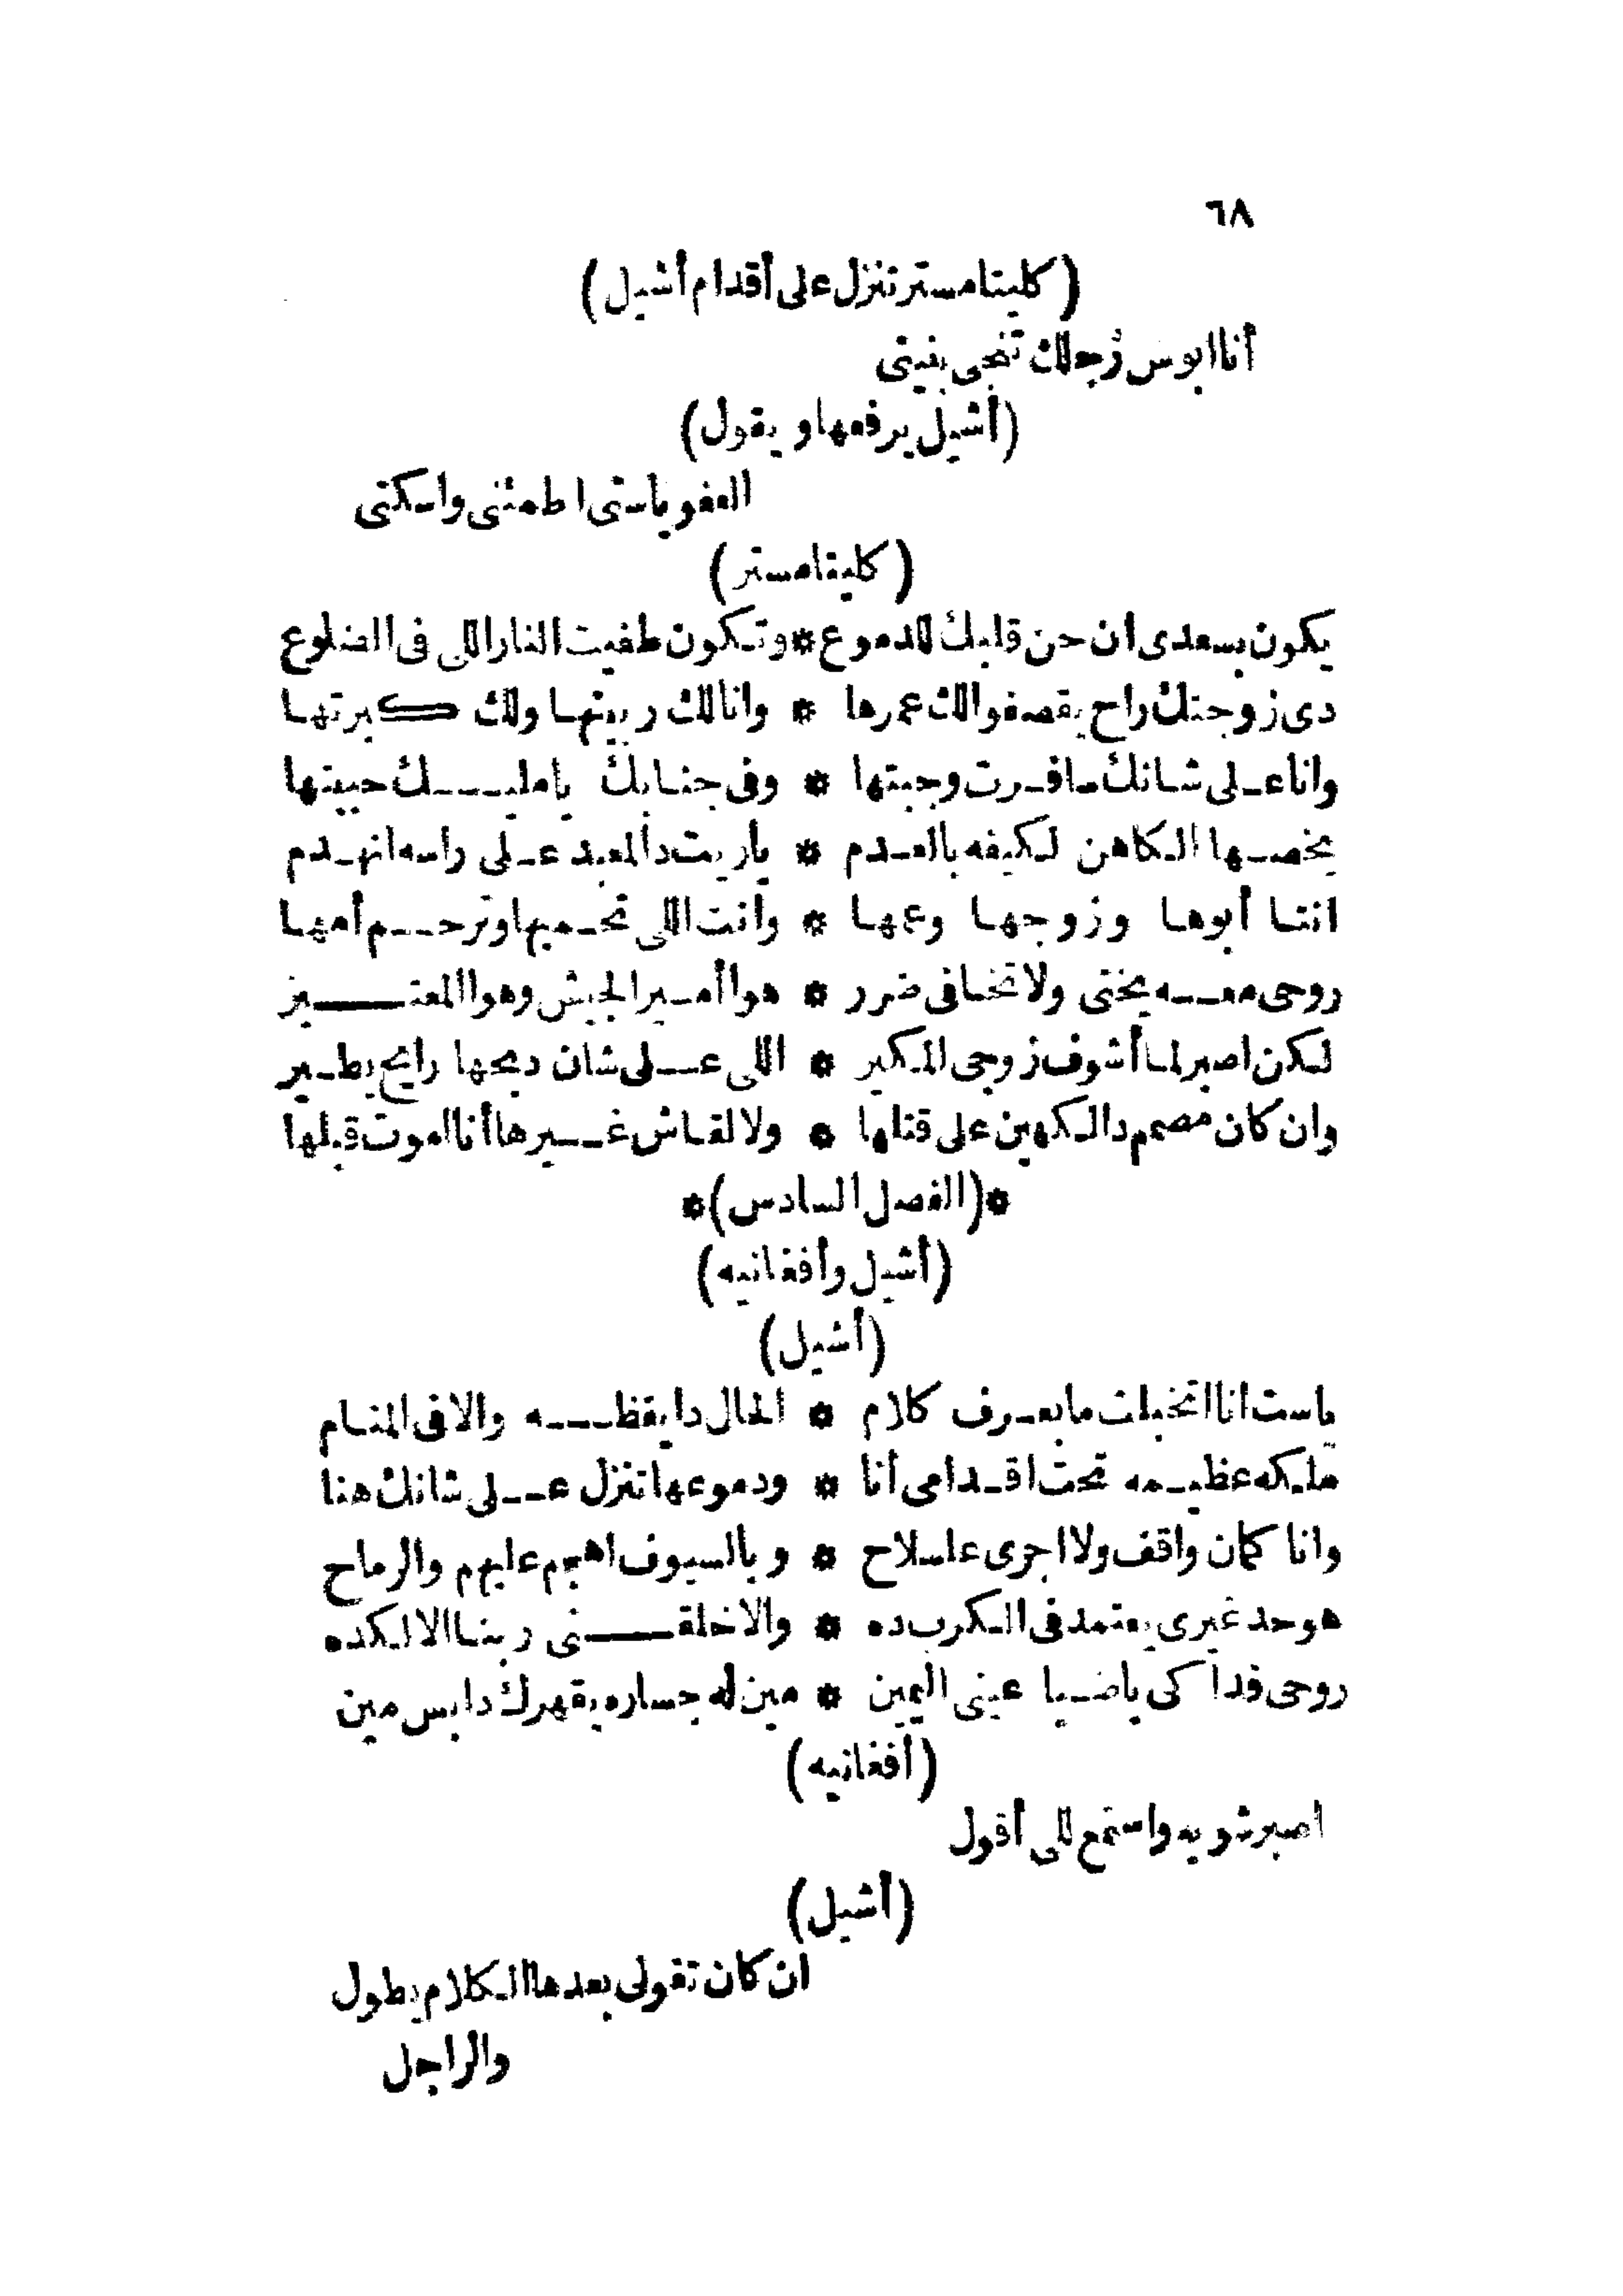 ٦٨
(كليتامستر تنزل على أقدام أشيل)
أنا ابوس رجلك تنجى بنيتى
(أشيل يرفعها ويقول)
العفو ياستى اطمئنى واسكتى
(كليتامستر)
يكون بسعدى ان حن قلبك للدموع * وتكون طفيت النار اللى فى الضلوع
دى زوجتك راح يقصفوا لك عمرها * وانا لك ربيتها ولك كبرتها
وانا على شانك سافرت وجبتها * وفى جنابك يامليك حبيتها
يخصها الكاهن لكيفه بالعدم * ياريت دا المعبد على راسه انهدم
انتا أبوها وزوجها وعمها * وانت اللى تحميها وترحم أمها
روحى معه يختى ولا تخافى ضرر * هوا أمير الجيش وهوا المعتبر
لكن اصبر لما أشوف زوجى الكبير * اللى على شان دبحها رايح يطير
وان كان مصمم دا الكهين على قتلها * ولا لقاش غيرها أنا اموت قبلها
*(الفصل السادس)*
(أشيل وأفغانيه)
(أشيل)
ياست انا اتخبلت مابعرف كلام * الحال دا يقظه والا فى المنام
ملكه عظيمه تحت اقدامى أنا * ودموعها تنزل على شانك هنا
وانا كمان واقف ولا اجرى عاسلاح * وبالسيوف اهجم عليهم والرماح
هو حد غيرى يعتمد فى الكرب ده * والا خلقنى ربنا الا لكده
روحى فداكى ياضيا عينى اليمين * مين له جساره يقهرك دا بس مين
(أفغانيه)
اصبر شويه واستمع للى أقول
(أشيل)
ان كان تقولى بعدها الكلام يطول
والراجل